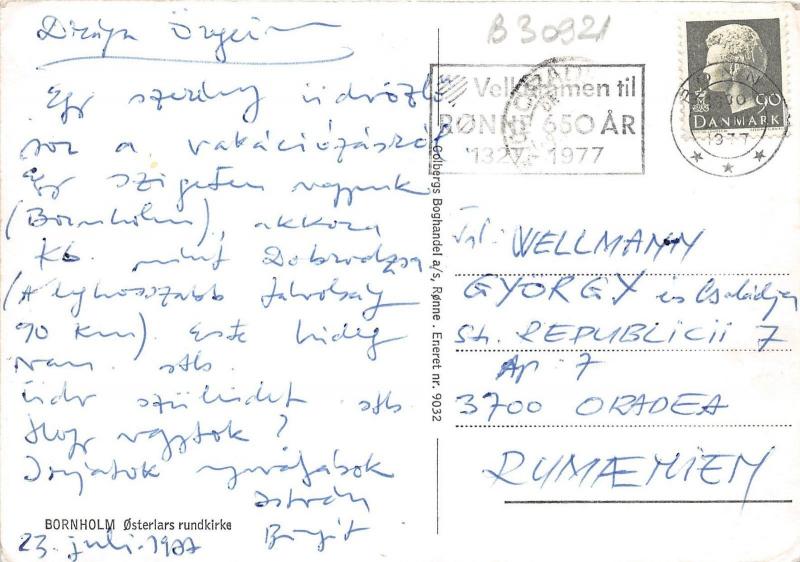 B 30921
Drága
Egy szerény üdvözlő
sor a vakációzásról
Egy szigeten vagyunk
(Bornholm), akkora
kb. mint Dobrudzsa
(A leghosszabb távolság
90 km). Este hideg
van. stb.
üdv szüleidet stb
Hogy vagytok?
Írjatok
István
Birgit
BORNHOLM Østerlars rundkirke
23. juli. 1977
Golbergs Boghandel a/s, Rønne . Eneret nr. 9032
Velkommen til
RØNNE 650 ÅR
1327 - 1977
RØNNE
1977
90
DANMARK
WELLMANN
GYÖRGY és Családja
str. REPUBLICII 7
Ap. 7
3700 ORADEA
RUMÆNIEN